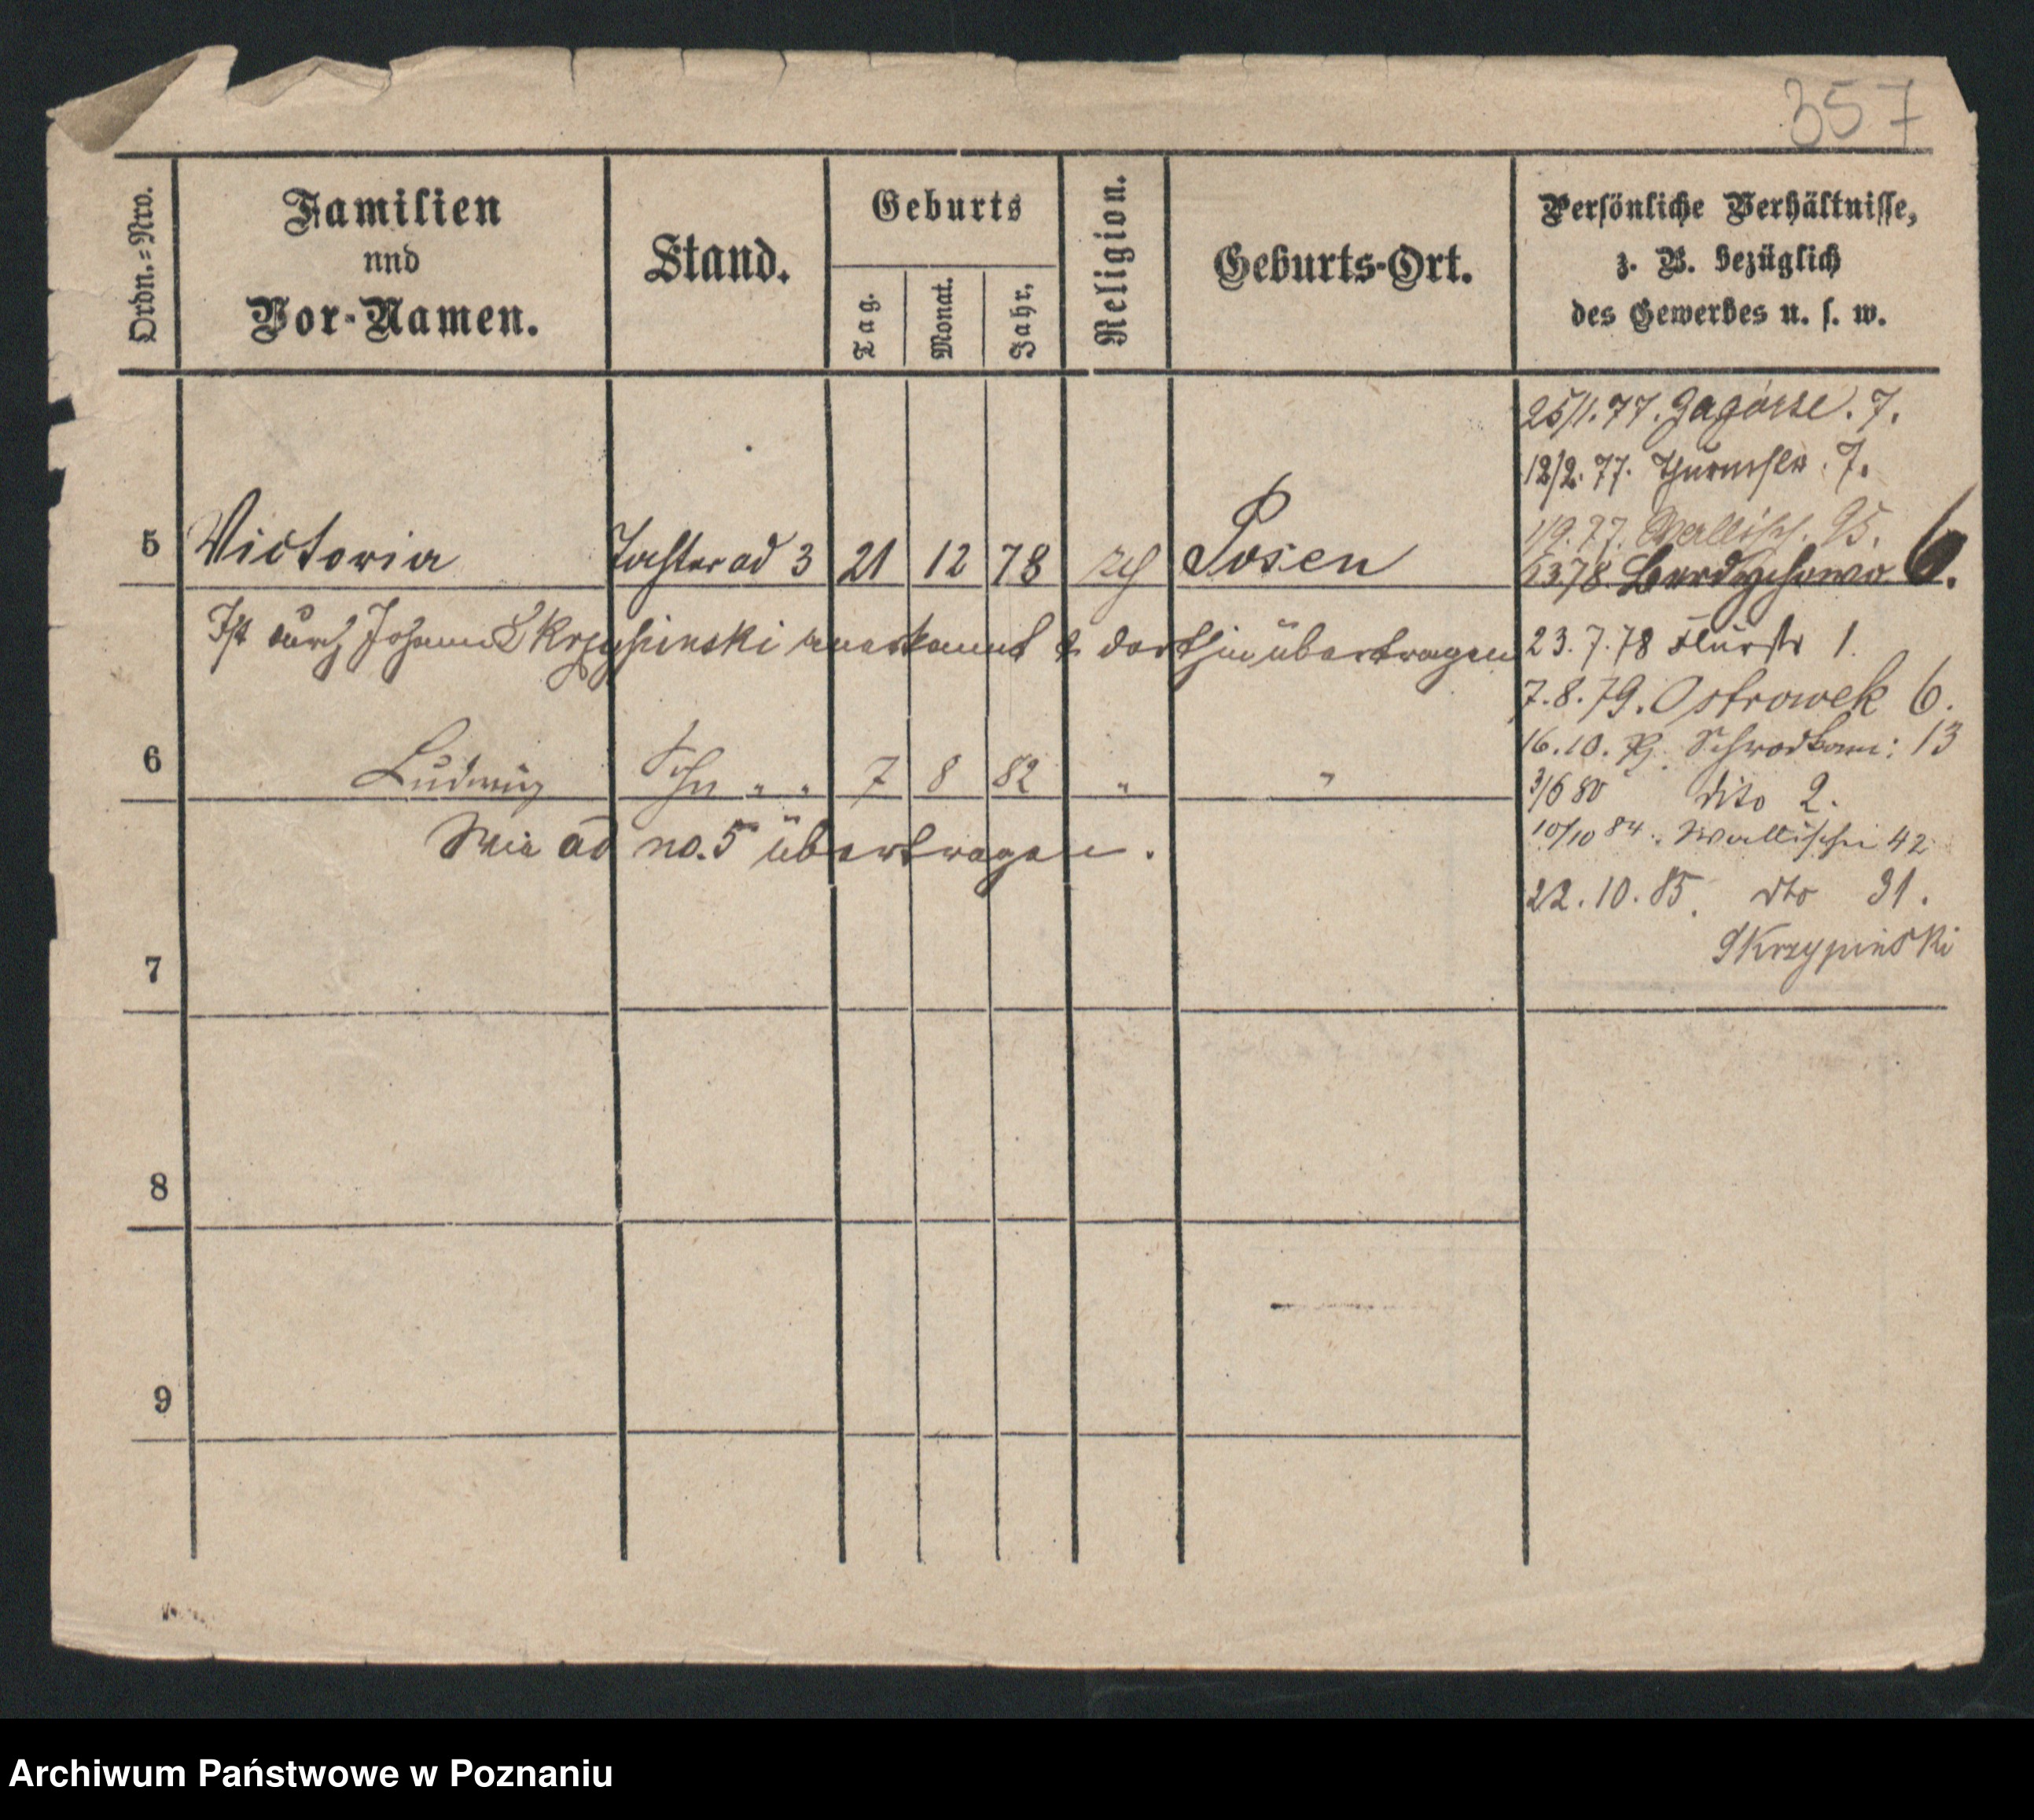 357
Ordn.=Nro.
Familien
und
Vor-Namen.
Stand.
Geburts
Tag.
Monat.
Jahr.
Religion.
Geburts-Ort.
Persönliche Verhältnisse,
z. B. bezüglich
des Gewerbes u. s. w.
25/1. 77. Zagórze. 7.
12/2. 77. Thurmstr. 7.
1/9. 77. Wallisch. 95.
5 Victoria Tochter ad 3 21 12 78 Posen
78. Berdychowo 6.
Ist durch Johann Skrzypinski anerkannt & dorthin übertragen
23. 7. 78 Flurstr 1.
7. 8. 79. Ostrowek 6.
16. 10. 79. 13
6 Ludwig Sohn " " 7 8 82 " "
3/6 80 dito 2.
Wie ad no. 5 übertragen.
10/10 84. Wallischei 42
22. 10. 85. dto 31.
Skrzypinski
7
8
9
Archiwum Państwowe w Poznaniu